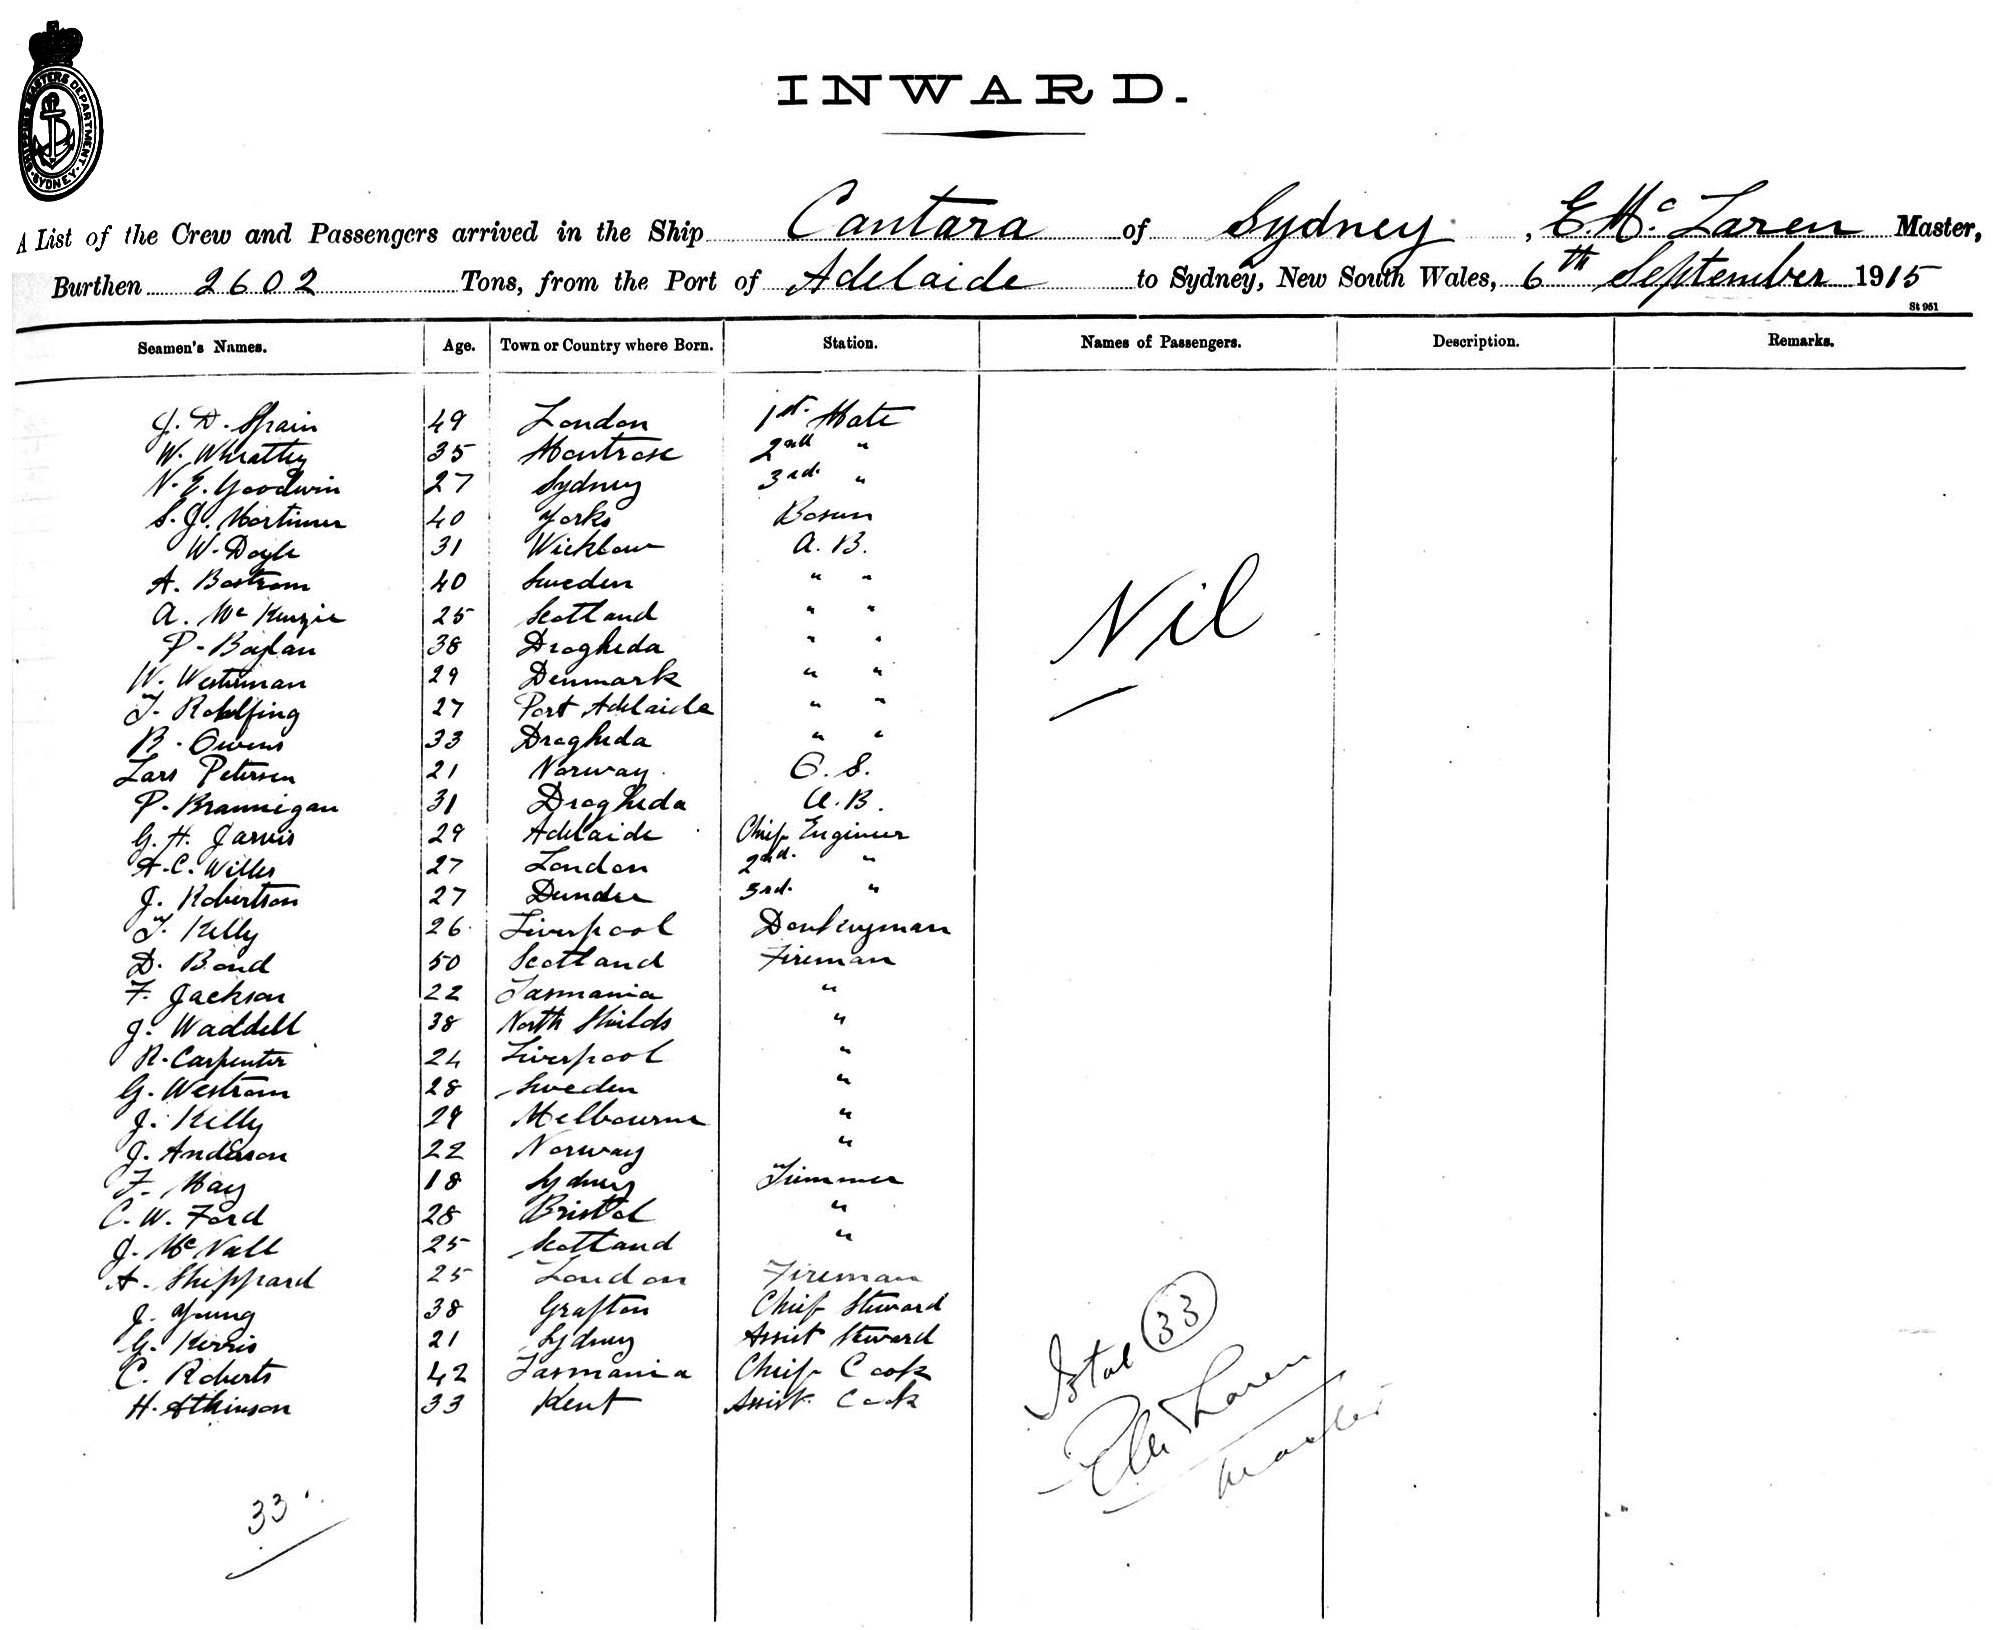 SHIPPING MASTERS DEPARTMENT. SYDNEY.
INWARD.
A List of the Crew and Passengers arrived in the Ship Cantara of Sydney, E. Mc Laren Master,
Burthen 2602 Tons, from the Port of Adelaide to Sydney, New South Wales, 6th September 1915
St 951
Seamen's Names. Age. Town or Country where Born. Station. Names of Passengers. Description. Remarks.
J. D. Spain 49 London 1st. Mate
W. Whratley 35 Montrose 2nd "
N. E. Goodwin 27 Sydney 3rd. "
S. J. Mortimer 40 Yorks Bosun
W. Doyle 31 Wicklow A. B.
A. Bostrom 40 Sweden " "
A. Mc Kenzie 25 Scotland " "
P. Boylan 38 Drogheda " "
W. Westerman 29 Denmark " "
T. Rohlfing 27 Port Adelaide " "
B. Owens 33 Drogheda " "
Lars Petersen 21 Norway. O. S.
P. Brannigan 31 Drogheda A. B.
G. H. Jarvis 29 Adelaide Chief Engineer
A. C. Willes 27 London 2nd. "
J. Robertson 27 Dundee 3rd. "
T. Kelly 26 Liverpool Donkeyman
D. Bond 50 Scotland Fireman
F. Jackson 22 Tasmania "
J. Waddell 38 North Shields "
R. Carpenter 24 Liverpool "
G. Westrom 28 Sweden "
J. Kelly 29 Melbourne "
J. Anderson 22 Norway "
F. May 18 Sydney Trimmer
C. W. Ford 28 Bristol "
J. Mc Nall 25 Scotland "
A. Sheppard 25 London Fireman
J. Young 38 Grafton Chief Steward
G. Kerris 21 Sydney Assist Steward
C. Roberts 42 Tasmania Chief Cook
H. Atkinson 33 Kent Assist. Cook
Nil
Total 33
E Mc Laren
Master
33